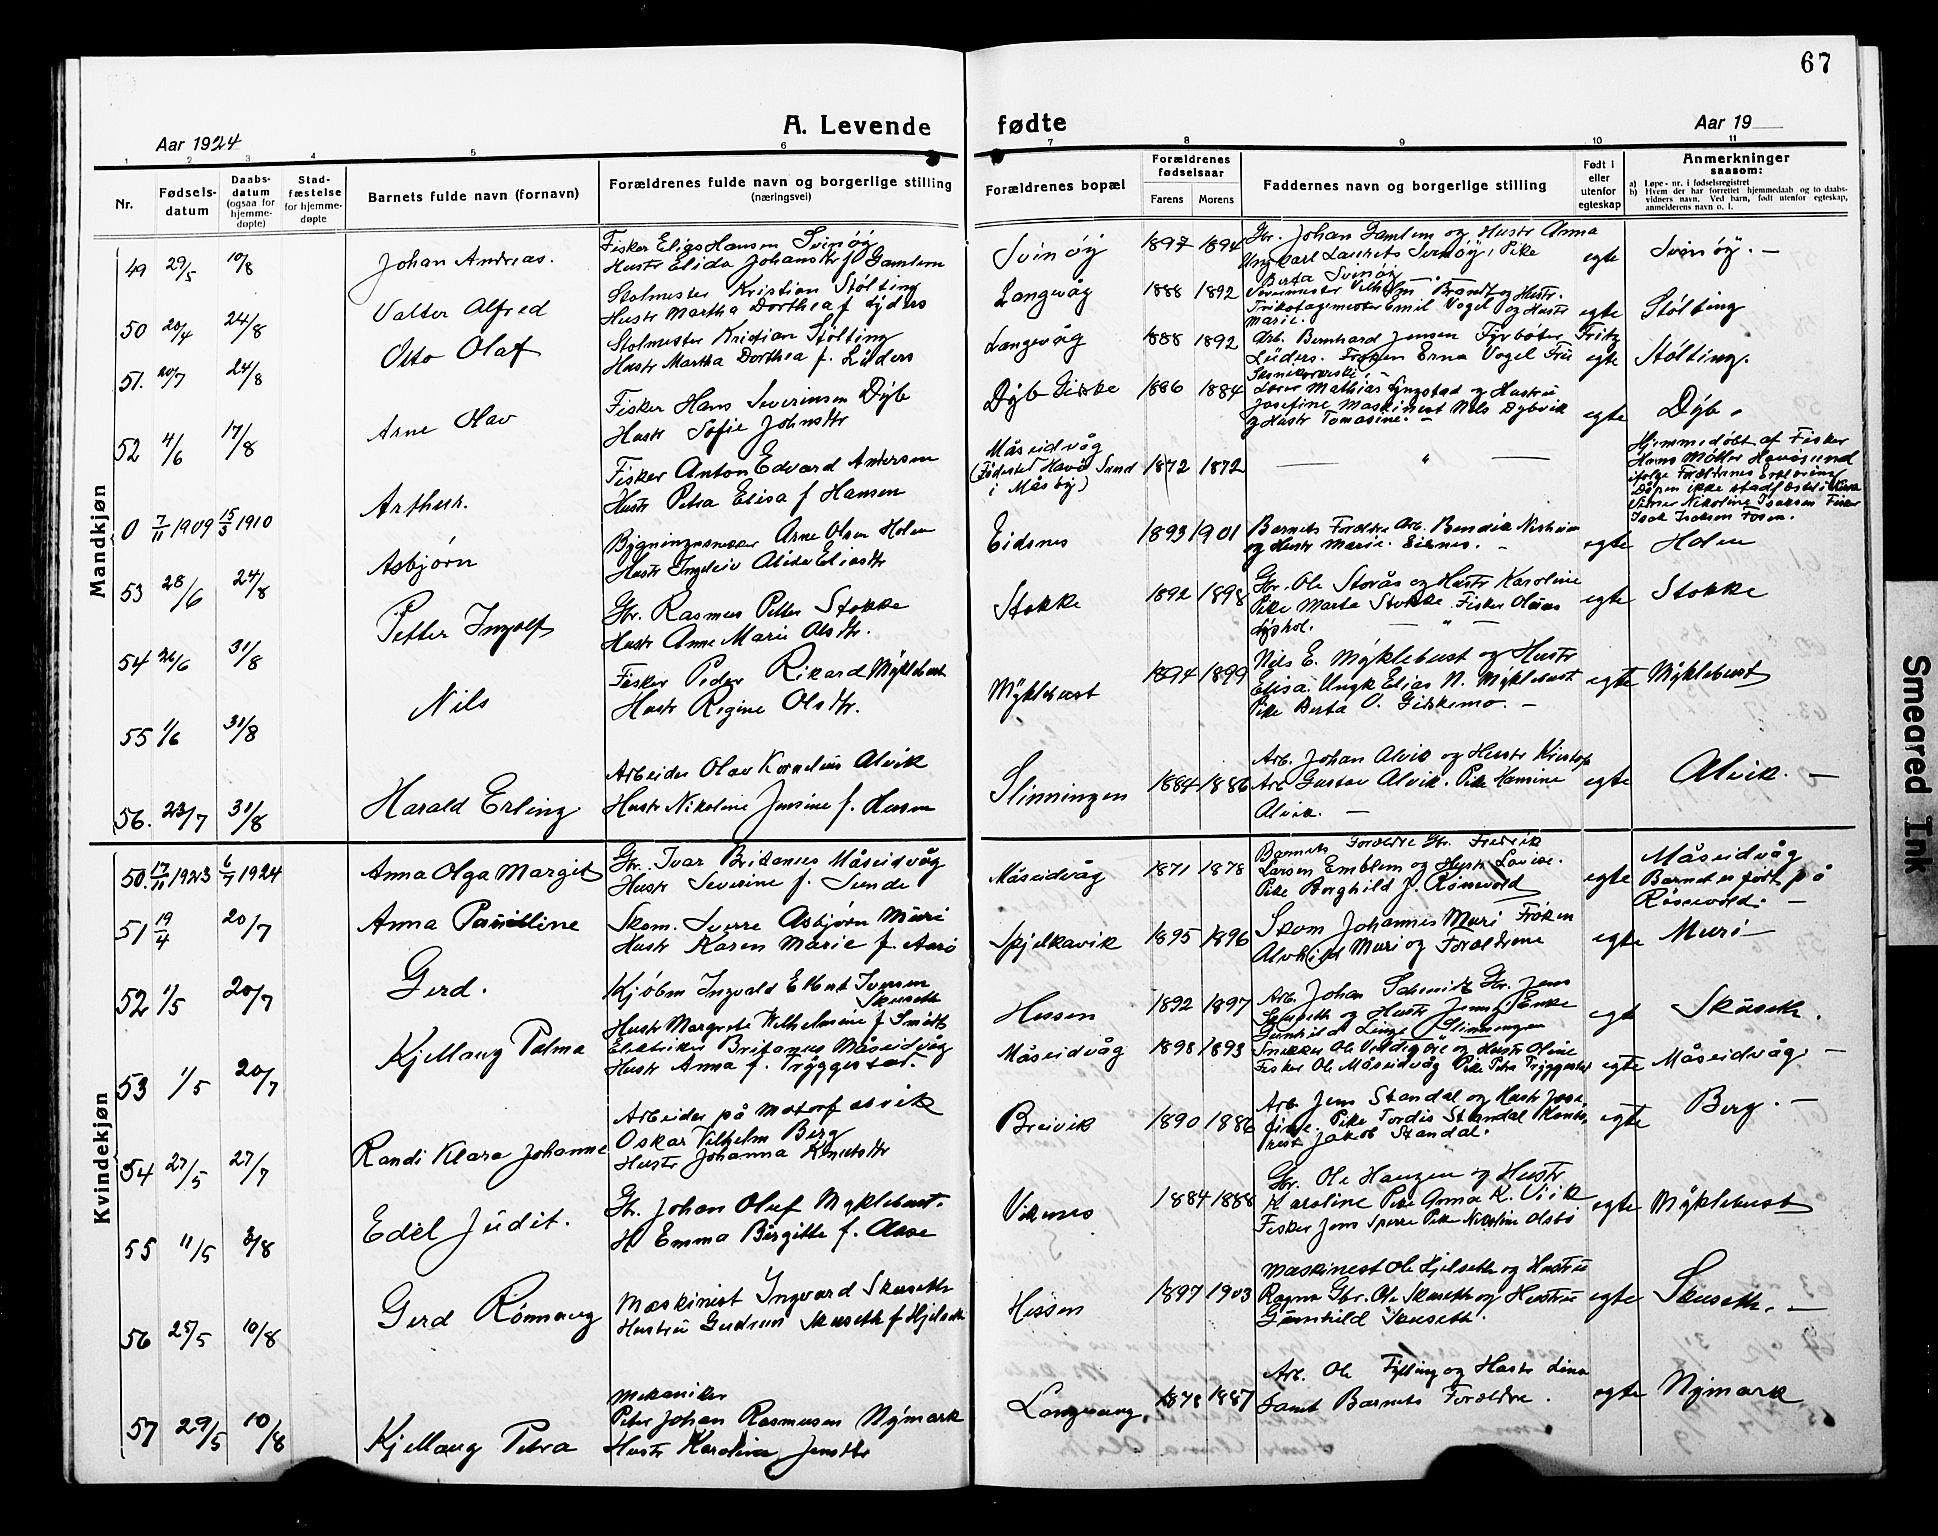 67
Aar 1924
A. Levende
fødte
Aar 19
1 2 3 4 5 6 7 8 9 10 11
Nr.
Fødsels-
datum
Daabs-
datum
(ogsaa for
hjemme-
døpte)
Stad-
fæstelse
for hjemme-
døpte
Barnets fulde navn (fornavn)
Forældrenes fulde navn og borgerlige stilling
(næringsvei)
Forældrenes bopæl
Forældrenes
fødselsaar
Farens
Morens
Faddernes navn og borgerlige stilling
Født i
eller
utenfor
egteskap
Anmerkninger
saasom:
a) Løpe-nr. i fødselsregistret
b) Hvem der har forrettet hjemmedaab og to daabs-
vidners navn. Ved barn, født utenfor egteskap,
anmelderens navn o. l.
Mandkjøn
49 29/5 10/8 Johan Andreas.
Fisker Elias Hansen Svinøy
Hustr Elida Johansdtr f Gamlem
Svinøy 1897 1894
Gbr. Johan Gamlem og Hustr Anna
Ungk Carl Laurits Svinøy, Pike
Berta Svinøy
egte Svinøy. —
50 20/4 24/8 Valter Alfred
Stolmester Kristian Stölting
Hustr Martha Dorthea f. Lyders
Langevåg 1888 1892
Vilhelm Brandt og Hustr.
Trikotagemester Emil Vogel og Hustr
Marie.
egte Stölting
51. 20/7 24/8 Otto Olaf
Stolmester Kristian Stölting
Hustr Martha Dorthea f. Lüders
Langevåg 1888 1892
Arb. Bernhard Jensen Fyrbøter Fritz
Lüders. Frøken Erna Vogel Frü
egte Stölting.
52 4/6 17/8 Arne Olav
Fisker Hans Severinsen Dyb
Hustr Sofie Johnsdtr
Dyb Giske 1886 1884
Lærer Mathias Lyngstad og Hustrü
Josefine Maskinest Nils Dybvik
og Hustr Tomasine. —
egte Dyb.
0 7/11 1909 15/3 1910 Arthur.
Fisker Anton Edvard Andersen
Hustr Petra Elisa f Hansen
Måseidvåg
(Fødested Havø Sund
i Måsøy)
1872 1872
— " —
Hjemmedøbt af Fisker
Hans Møller Havøsund
ifølge Forældrenes Erklæring
Dåpen ikke stadfæstet i Kirke
Nikoline Isaksen Fisker
Isak Isaksen
53 28/6 24/8 Asbjørn
Bygningssnekker Arne Olsen Holen
Hustr Ingleiv Alida Eliasdtr
Eidsnes 1893 1901
Barnets Forældre Arb. Bendik
og Hustr Marie. Eidsnes. —
egte Holen
54 26/6 31/8 Petter Ingolf
Gbr. Rasmus Petter Stokke
Hustr Anne Marie Olsdtr.
Stokke 1892 1898
Gbr. Ole Storås og Hustr Karoline
Pike Marta Stokke. Fisker
— " —
egte Stokke
55 1/6 31/8 Nils
Fisker Peder Rikard Myklebust
Hustr Regine Olsdtr.
Myklebust 1894 1899
Nils E. Myklebust og Hustr
Elisa. Ungk Elias N. Myklebust
Pike Berta O. Giskemo. —
egte Myklebust
56. 23/7 31/8 Harald Erling
Arbeider Olav Kornelius Alvik
Hustr Nikoline Jensine f. Husen
Slinningen 1884 1886
Arb. Johan Alvik og Hustr
Arb Gustav Alvik. Pike Hansine
Alvik. —
egte Alvik. —
Kvindekjøn
50. 17/11 1923 6/7 1924 Anna Olga Margit
Gbr. Ivar Britanus Måseidvåg
Hustr Severine f. Sunde
Måseidvåg 1871 1878
Barnets Forældre Gbr. Fredrik
Larsen Emblem og Hustr Lovise.
Pike Borghild J. Rønsvold
egte Måseidvåg
Barnet er født på
51 19/4 20/7 Anna Paulline
Skom. Sverre Asbjørn Muri
Hustr Karen Marie f.
Spjelkavik 1895 1896
Skom Johannes Muri Frøken
Alvhild Muri og Forældrene
egte Muri
52 1/5 20/7 Gerd.
Kjøbm Ingvald Elbert Iversen
Skuseth
Hustr Margrete Wilhelmine f Smidt
Hessen 1892 1897
Arb. Johan Schmidt Gbr. Jens
Skuseth og Hustr Jenny Enke
Gunhild Linge Slinningen
egte Skuseth.
53 1/5 20/7 Kjellaug Palma
Elektriker Britanus Måseidvåg
Hustr Anna f. Tryggestad.
Måseidvåg 1898 1893
Snikker Ole og Hustr Oline
Fisker Ole Måseidvåg Pike Petra Tryggestad
egte Måseidvåg. —
54 27/5 27/7 Randi Klara Johanne
Arbeider på Motorf
Oskar Vilhelm Berg
Hustr Johanna Knutsdtr
Breivik 1890 1886
Arb. Jens Standal og Hustr Jose-
fine. Pike Tordis Standal
Jakob Standal.
egte Berg. —
55 11/5 3/8 Edel Judit.
Gbr. Johan Oluf Myklebust.
H Emma Birgitte f. Aase
Viknes 1884 1888
Gbr. Ole Haugen og Hustr
Karoline Pike Anna K. Viik
Fisker Jens Sperre Pike Nikoline
egte Myklebust
56 25/5 10/8 Gerd Rønnaug
Maskinest Ingvard Skuseth
Hustru Gudrun Skuseth f Hjelseth
Hessen 1897 1903
Maskinest Ole Hjelseth og Hustru
Ragna Gbr. Ole Skuseth og Hustru
Gunhild Skuseth.
egte Skuseth. —
57 29/5 10/8 Kjellaug Petra
Mekaniker
Peter Johan Rasmusen Nymark
Hustr Karoline Jensdtr
Langevåg. 1878 1887
Arb. Ole Fylling og Hustr Lina
samt Barnets Forældre.
egte Nymark
Smeared Ink